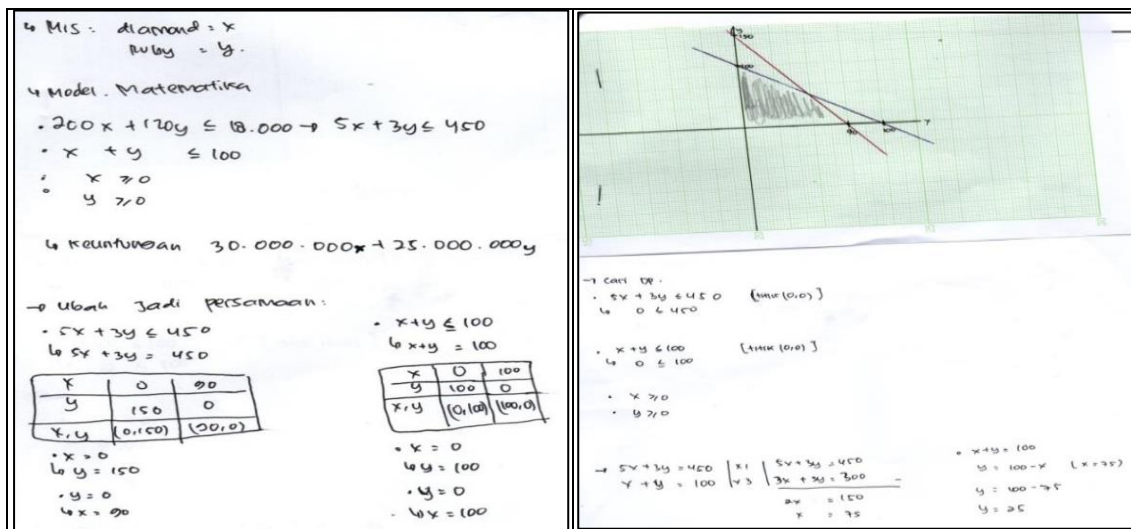 ↳ Mis : diamond = x
Ruby = y.
↳ Model. Matematika
• 200x + 120y ≤ 18.000 → 5x + 3y ≤ 450
• x + y ≤ 100
• x ≥ 0
• y ≥ 0
↳ Keuntungan 30.000.000x + 25.000.000y
→ Ubah Jadi persamaan :
• 5x + 3y ≤ 450
↳ 5x + 3y = 450
x 0 90
y 150 0
x,y (0,150) (90,0)
• x = 0
↳ y = 150
• y = 0
↳ x = 90
• x+y ≤ 100
↳ x+y = 100
x 0 100
y 100 0
x,y (0,100) (100,0)
• x = 0
↳ y = 100
• y = 0
↳ x = 100
150
100
90
100
→ Cari DP.
• 5x + 3y ≤ 450 [titik (0,0)]
↳ 0 ≤ 450
• x + y ≤ 100 [titik (0,0)]
↳ 0 ≤ 100
• x ≥ 0
• y ≥ 0
→ 5x + 3y = 450 | x1 | 5x + 3y = 450
x + y = 100 | x3 | 3x + 3y = 300 -
2x = 150
x = 75
• x+y = 100
y = 100-x (x=75)
y = 100-75
y = 25